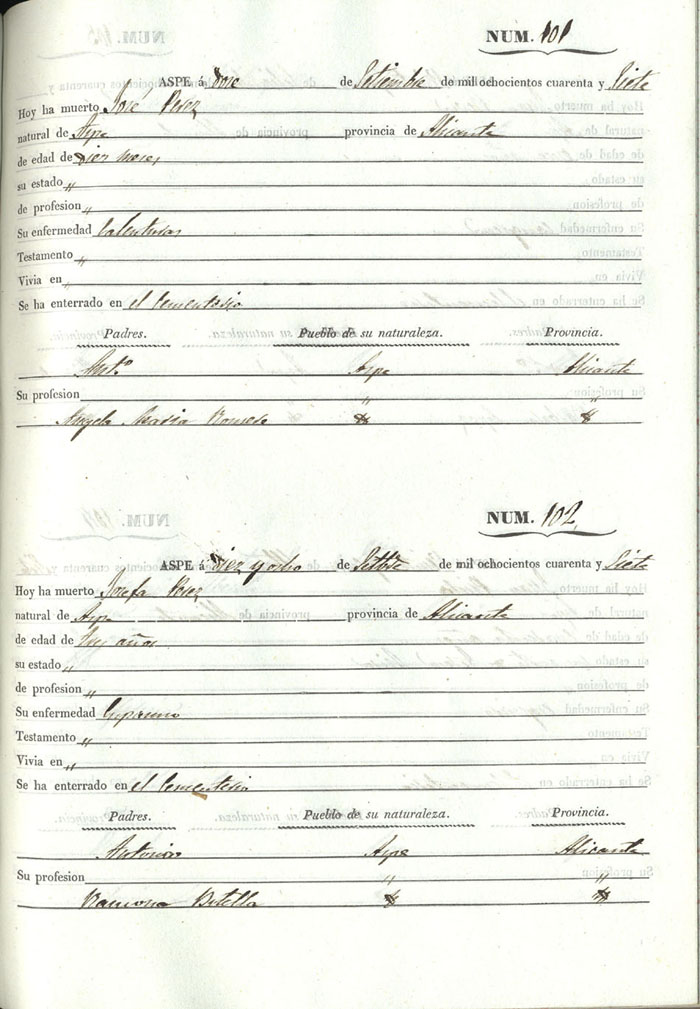 NUM. 101
ASPE á doce de Setiembre de mil ochocientos cuarenta y Siete
Hoy ha muerto José Perez
natural de Aspe provincia de Alicante
de edad de diez meses
su estado „
de profesion „
Su enfermedad Calenturas
Testamento „
Vivia en „
Se ha enterrado en el Cementerio
Padres. Pueblo de su naturaleza. Provincia.
Ant.º Aspe Alicante
Su profesion „ „
Angela Maria Romero
NUM. 102
ASPE á Diez y ocho de Setbre de mil ochocientos cuarenta y Siete
Hoy ha muerto Josefa Perez
natural de Aspe provincia de Alicante
de edad de años
su estado „
de profesion „
Su enfermedad
Testamento „
Vivia en „
Se ha enterrado en el Cementerio
Padres. Pueblo de su naturaleza. Provincia.
Antonio Aspe Alicante
Su profesion „ „
Ramona Botella